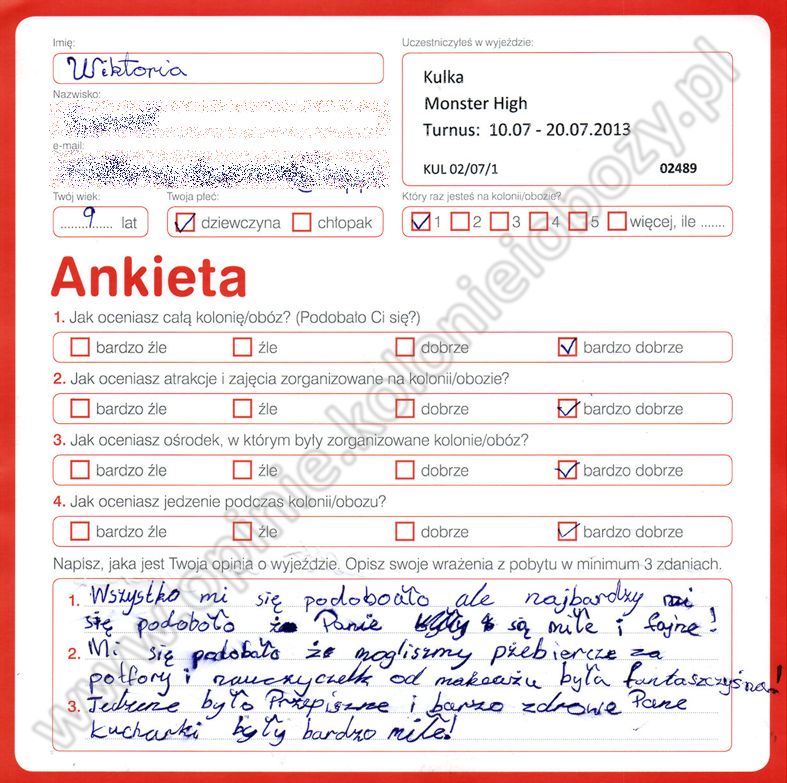 Imię:
Wiktoria
Nazwisko:
e-mail:
Twój wiek:
9 lat
Twoja płeć:
dziewczyna chłopak
Uczestniczyłeś w wyjeździe:
Kulka
Monster High
Turnus: 10.07 - 20.07.2013
KUL 02/07/1 02489
Który raz jesteś na kolonii/obozie?
1 2 3 4 5 więcej, ile .......
Ankieta
1. Jak oceniasz całą kolonię/obóz? (Podobało Ci się?)
bardzo źle źle dobrze bardzo dobrze
2. Jak oceniasz atrakcje i zajęcia zorganizowane na kolonii/obozie?
bardzo źle źle dobrze bardzo dobrze
3. Jak oceniasz ośrodek, w którym były zorganizowane kolonie/obóz?
bardzo źle źle dobrze bardzo dobrze
4. Jak oceniasz jedzenie podczas kolonii/obozu?
bardzo źle źle dobrze bardzo dobrze
Napisz, jaka jest Twoja opinia o wyjeździe. Opisz swoje wrażenia z pobytu w minimum 3 zdaniach.
1. Wszystko mi się podoboało ale najbardzy mi
się podoboło Panie są miłe i fajne!
2. Mi się podobało że mogliszmy pżebiercze za
potfory i nauczyczelk od makeażu była fantaszczyśna!
3. Jedzene było Przepiszne i barzo zdrowe Pane
kucharki były bardzo miłe!
www.opinie.kolonieiobozy.pl